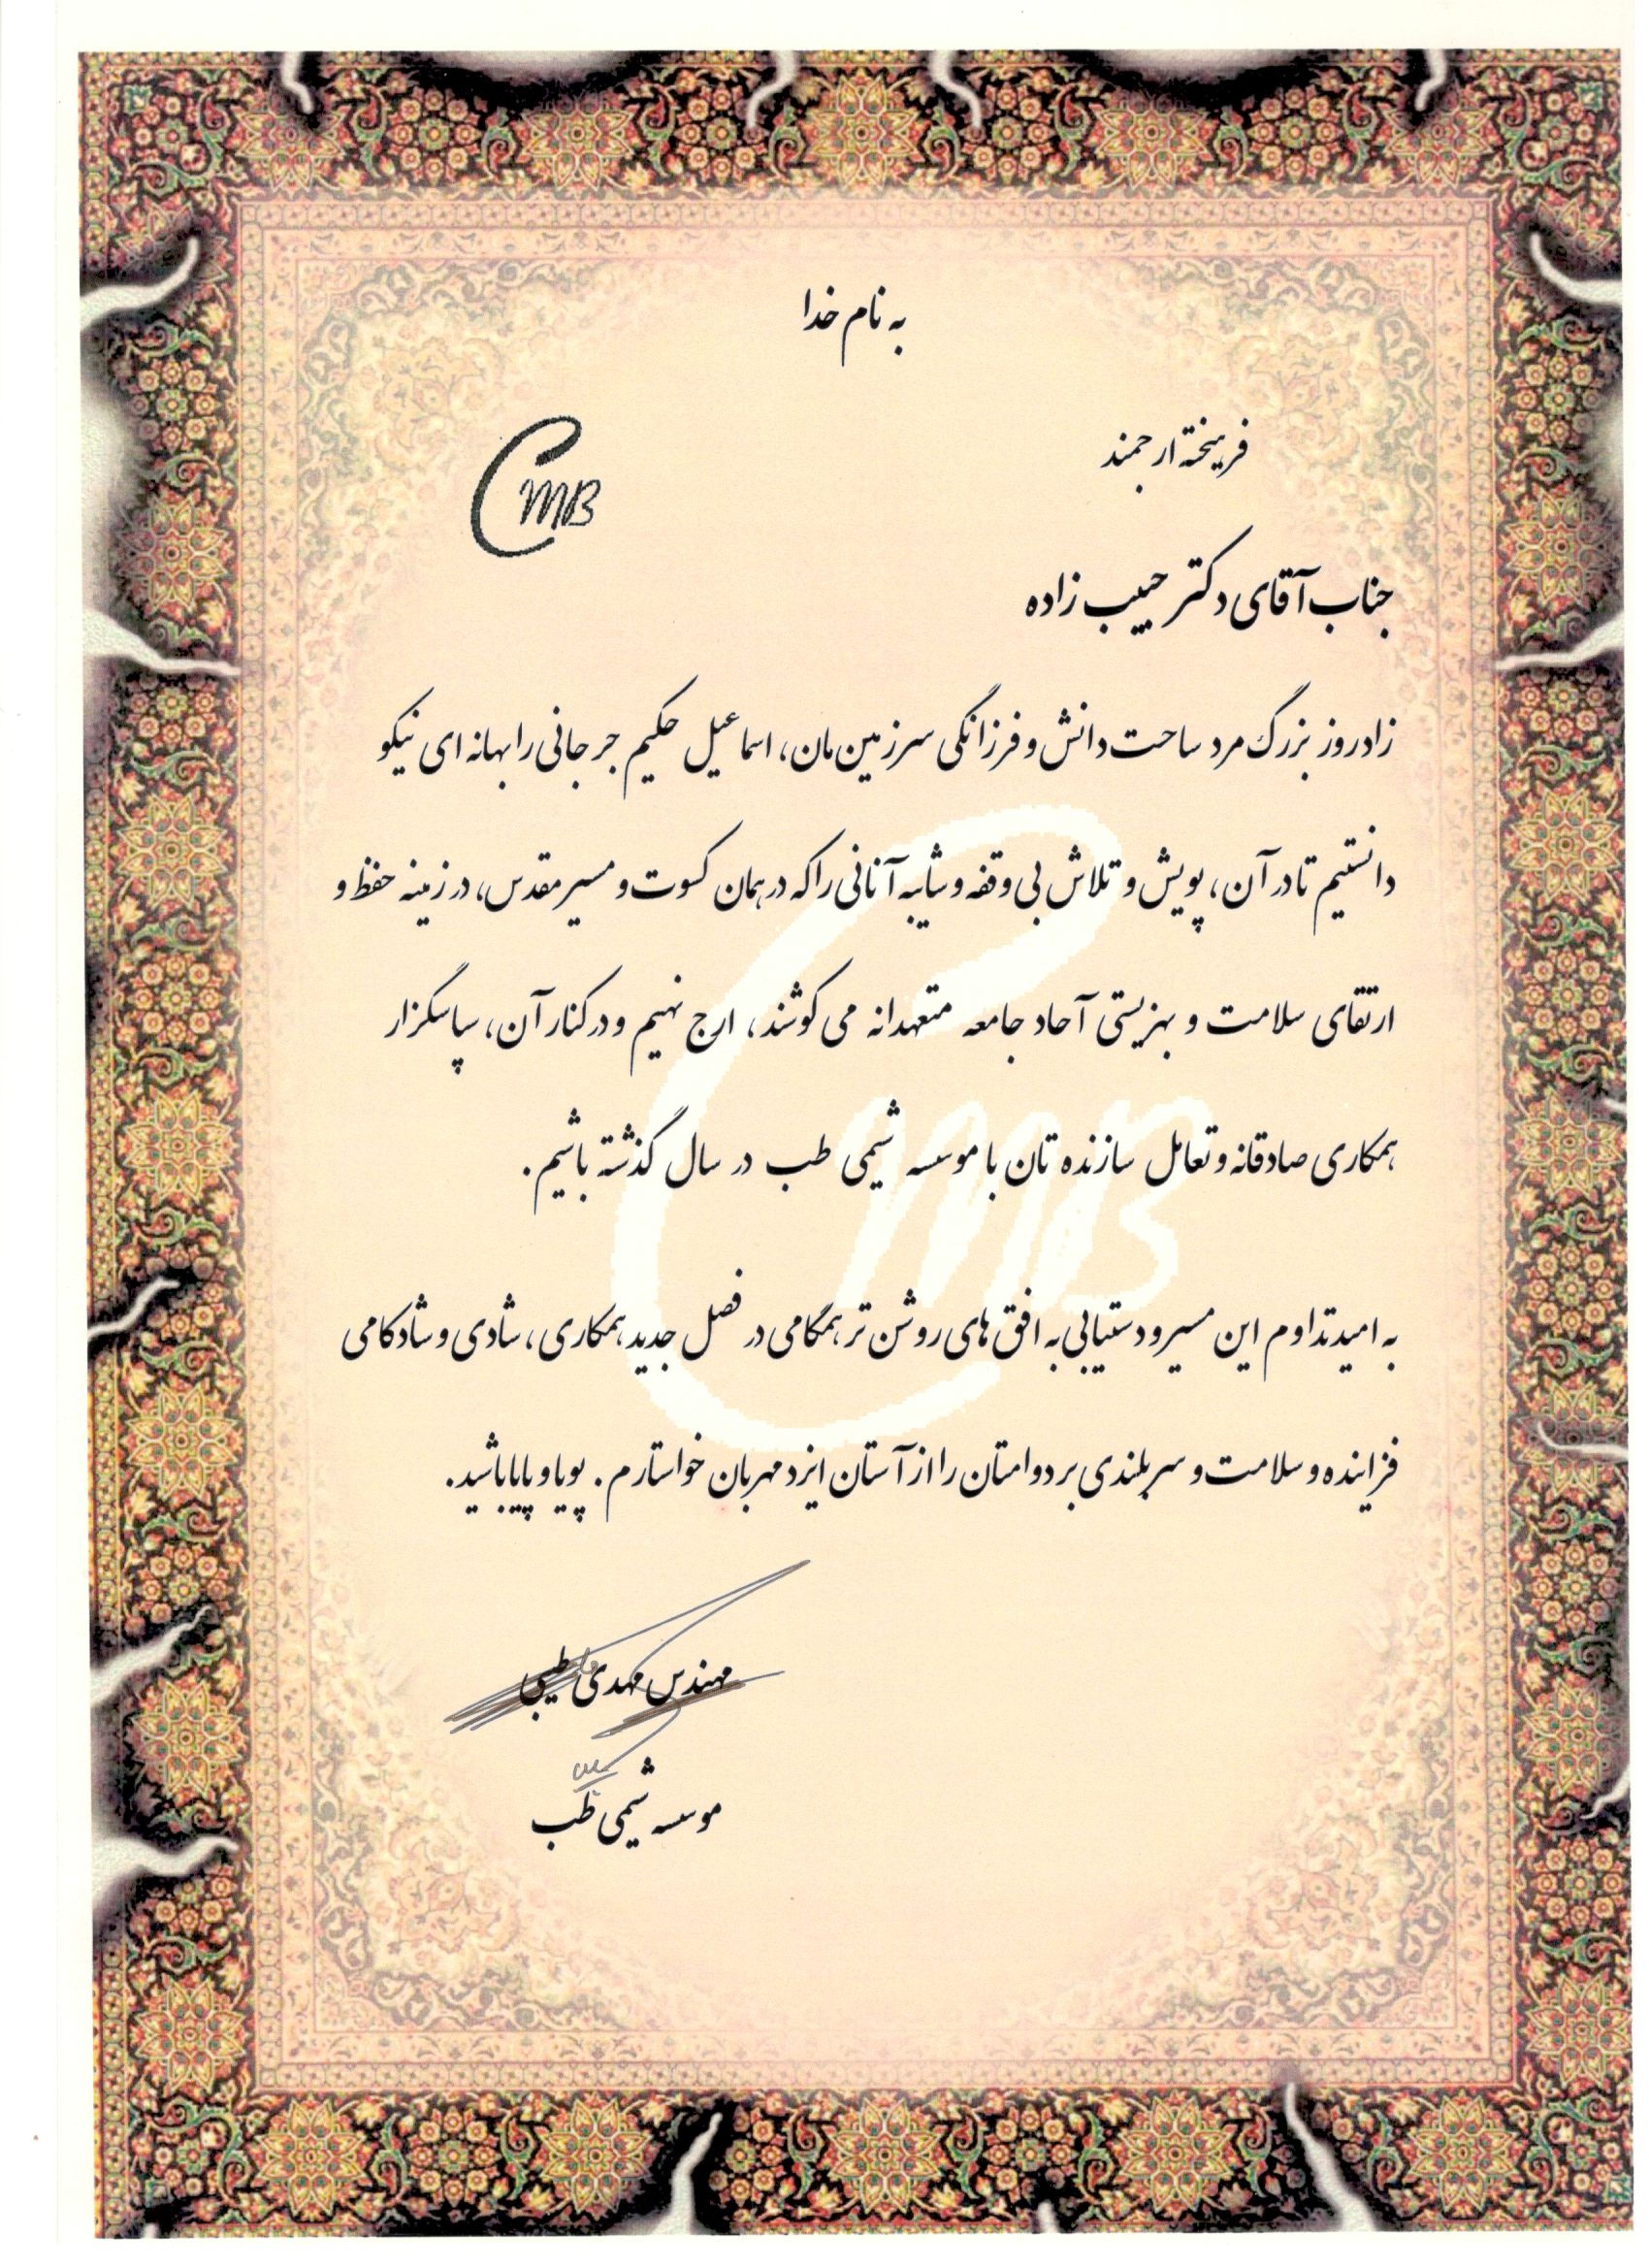 به نام خدا
فرهیخته ارجمند
CMB
جناب آقای دکتر حبیب زاده
زادروز بزرگ مرد ساحت دانش و فرزانگی سرزمین مان، اسماعیل حکیم جرجانی را بهانه ای نیکو
دانستیم تا در آن، پویش و تلاش بی وقفه و شایبه آنانی را که در همان کسوت و مسیر مقدس، در زمینه حفظ و
ارتقای سلامت و بهزیستی آحاد جامعه متعهدانه می کوشند، ارج نهیم و در کنار آن، سپاسگزار
همکاری صادقانه و تعامل سازنده تان با موسسه شیمی طب در سال گذشته باشیم.
به امید تداوم این مسیر و دستیابی به افق های روشن تر همگامی در فصل جدید همکاری، شادی و شادکامی
فزاینده و سلامت و سربلندی بر دوامتان را از آستان ایزد مهربان خواستارم. پویا و پایا باشید.
مهندس مهدی طبیبی
موسسه شیمی طب